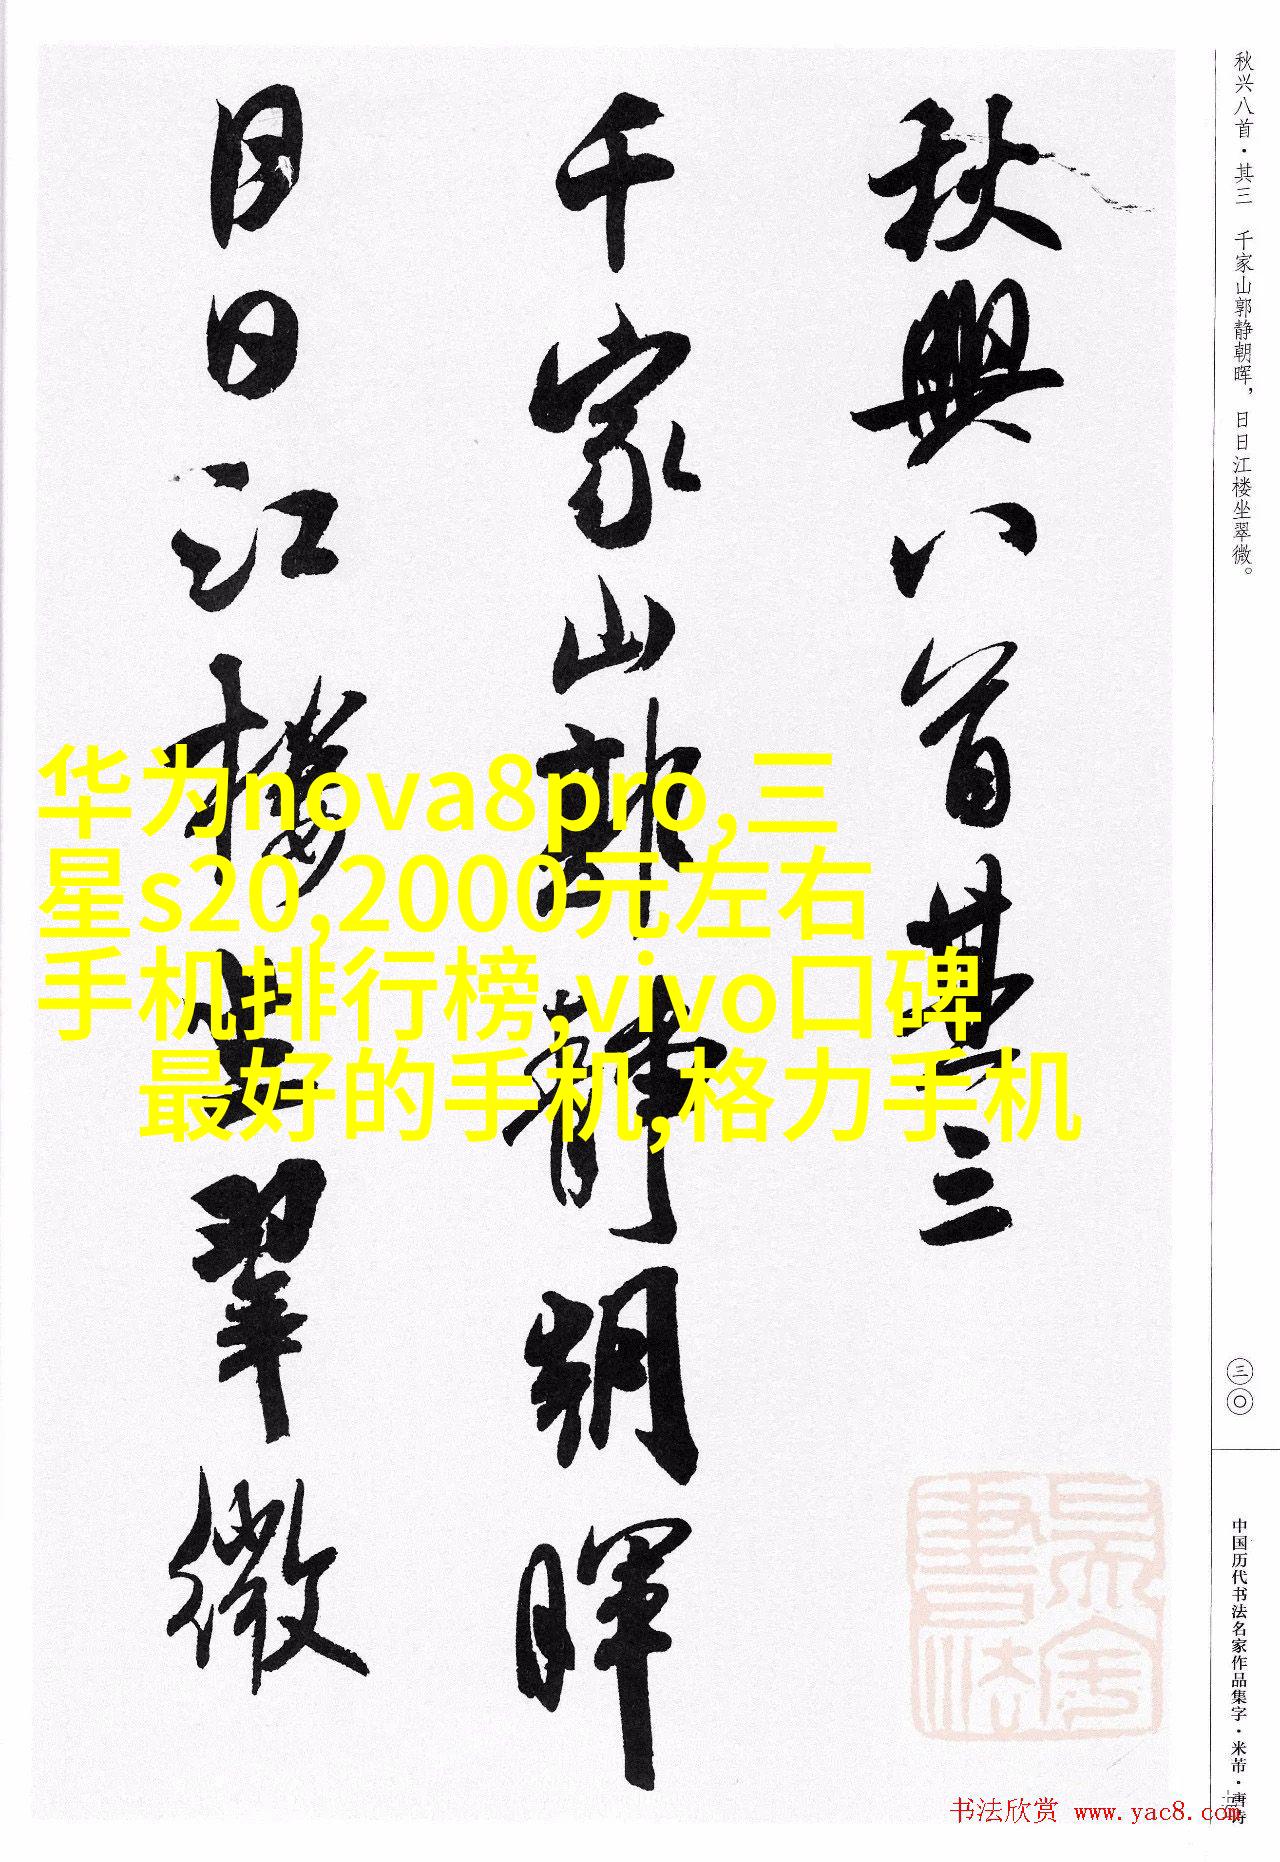 秋兴八首·其三 千家山郭静朝晖，日日江楼坐翠微。
三〇
中国历代书法名家作品集字·米芾·唐诗
秋興八首其三
千家山郭静朝暉
日日江樓坐翠微
华为nova8pro,三
星s20,2000元左右
手机排行榜,vivo口碑
最好的手机,格力手机
书法欣赏 www.yac8.com